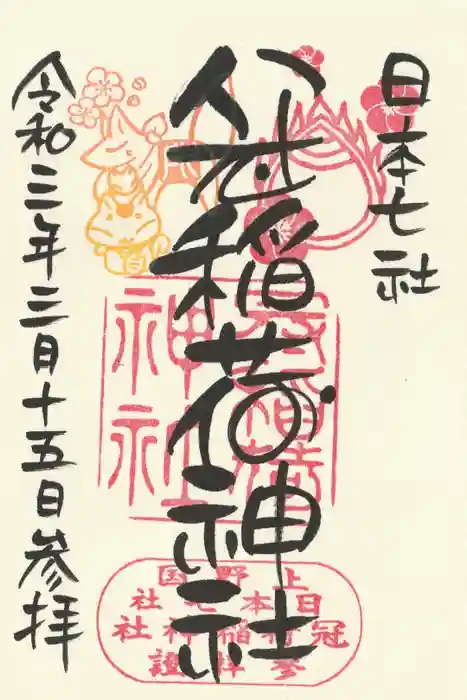 日本七社
冠稲荷神社
令和三年三月十五日参拝
神社
上野国
日本七社
冠稲荷神社
参拝證